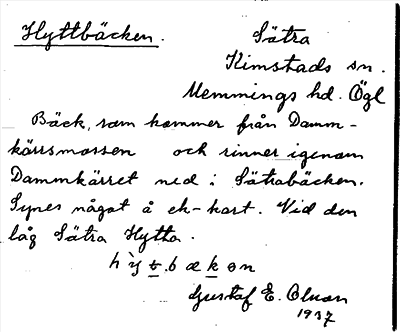 Hyttbäcken.
Sätra
Kimstads sn.
Memmings hd. Ögl
Bäck, som kommer från Damm-
kärrsmossen och rinner igenom
Dammkärret ned i Sätrabäcken.
Synes något å ek-kart. Vid den
låg Sätra Hytta.
Gustaf E. Olson
1937